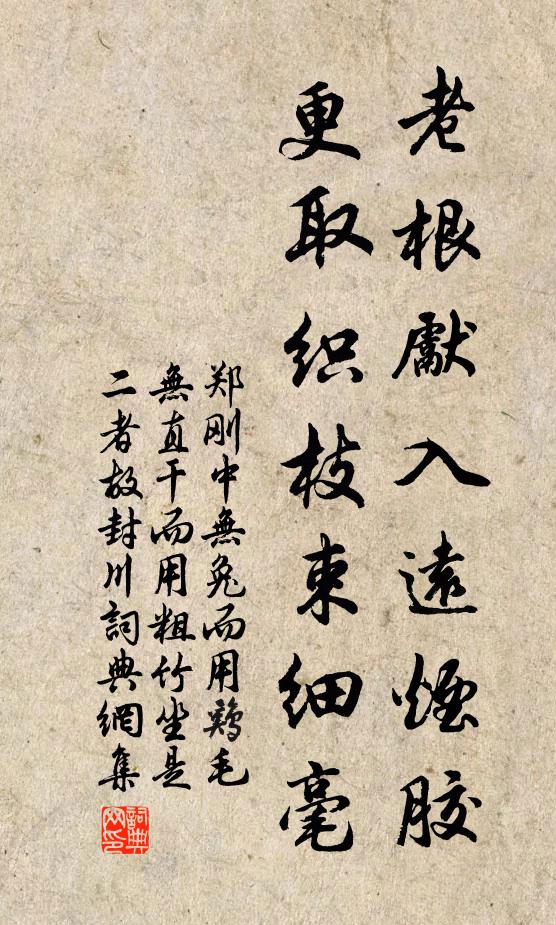 老根獻入遠煙胶
更取织枝束细毫
郑刚中無兔而用鷄毛
無直干而用粗竹坐是
二者故封川詞典網集
詞典
网印